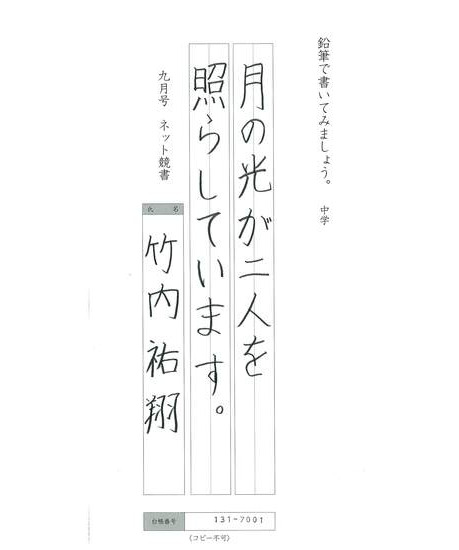 鉛筆で書いてみましょう。 中学
月の光が二人を
照らしています。
九月号 ネット競書
氏名
竹内祐翔
台帳番号 131-7001
(コピー不可)